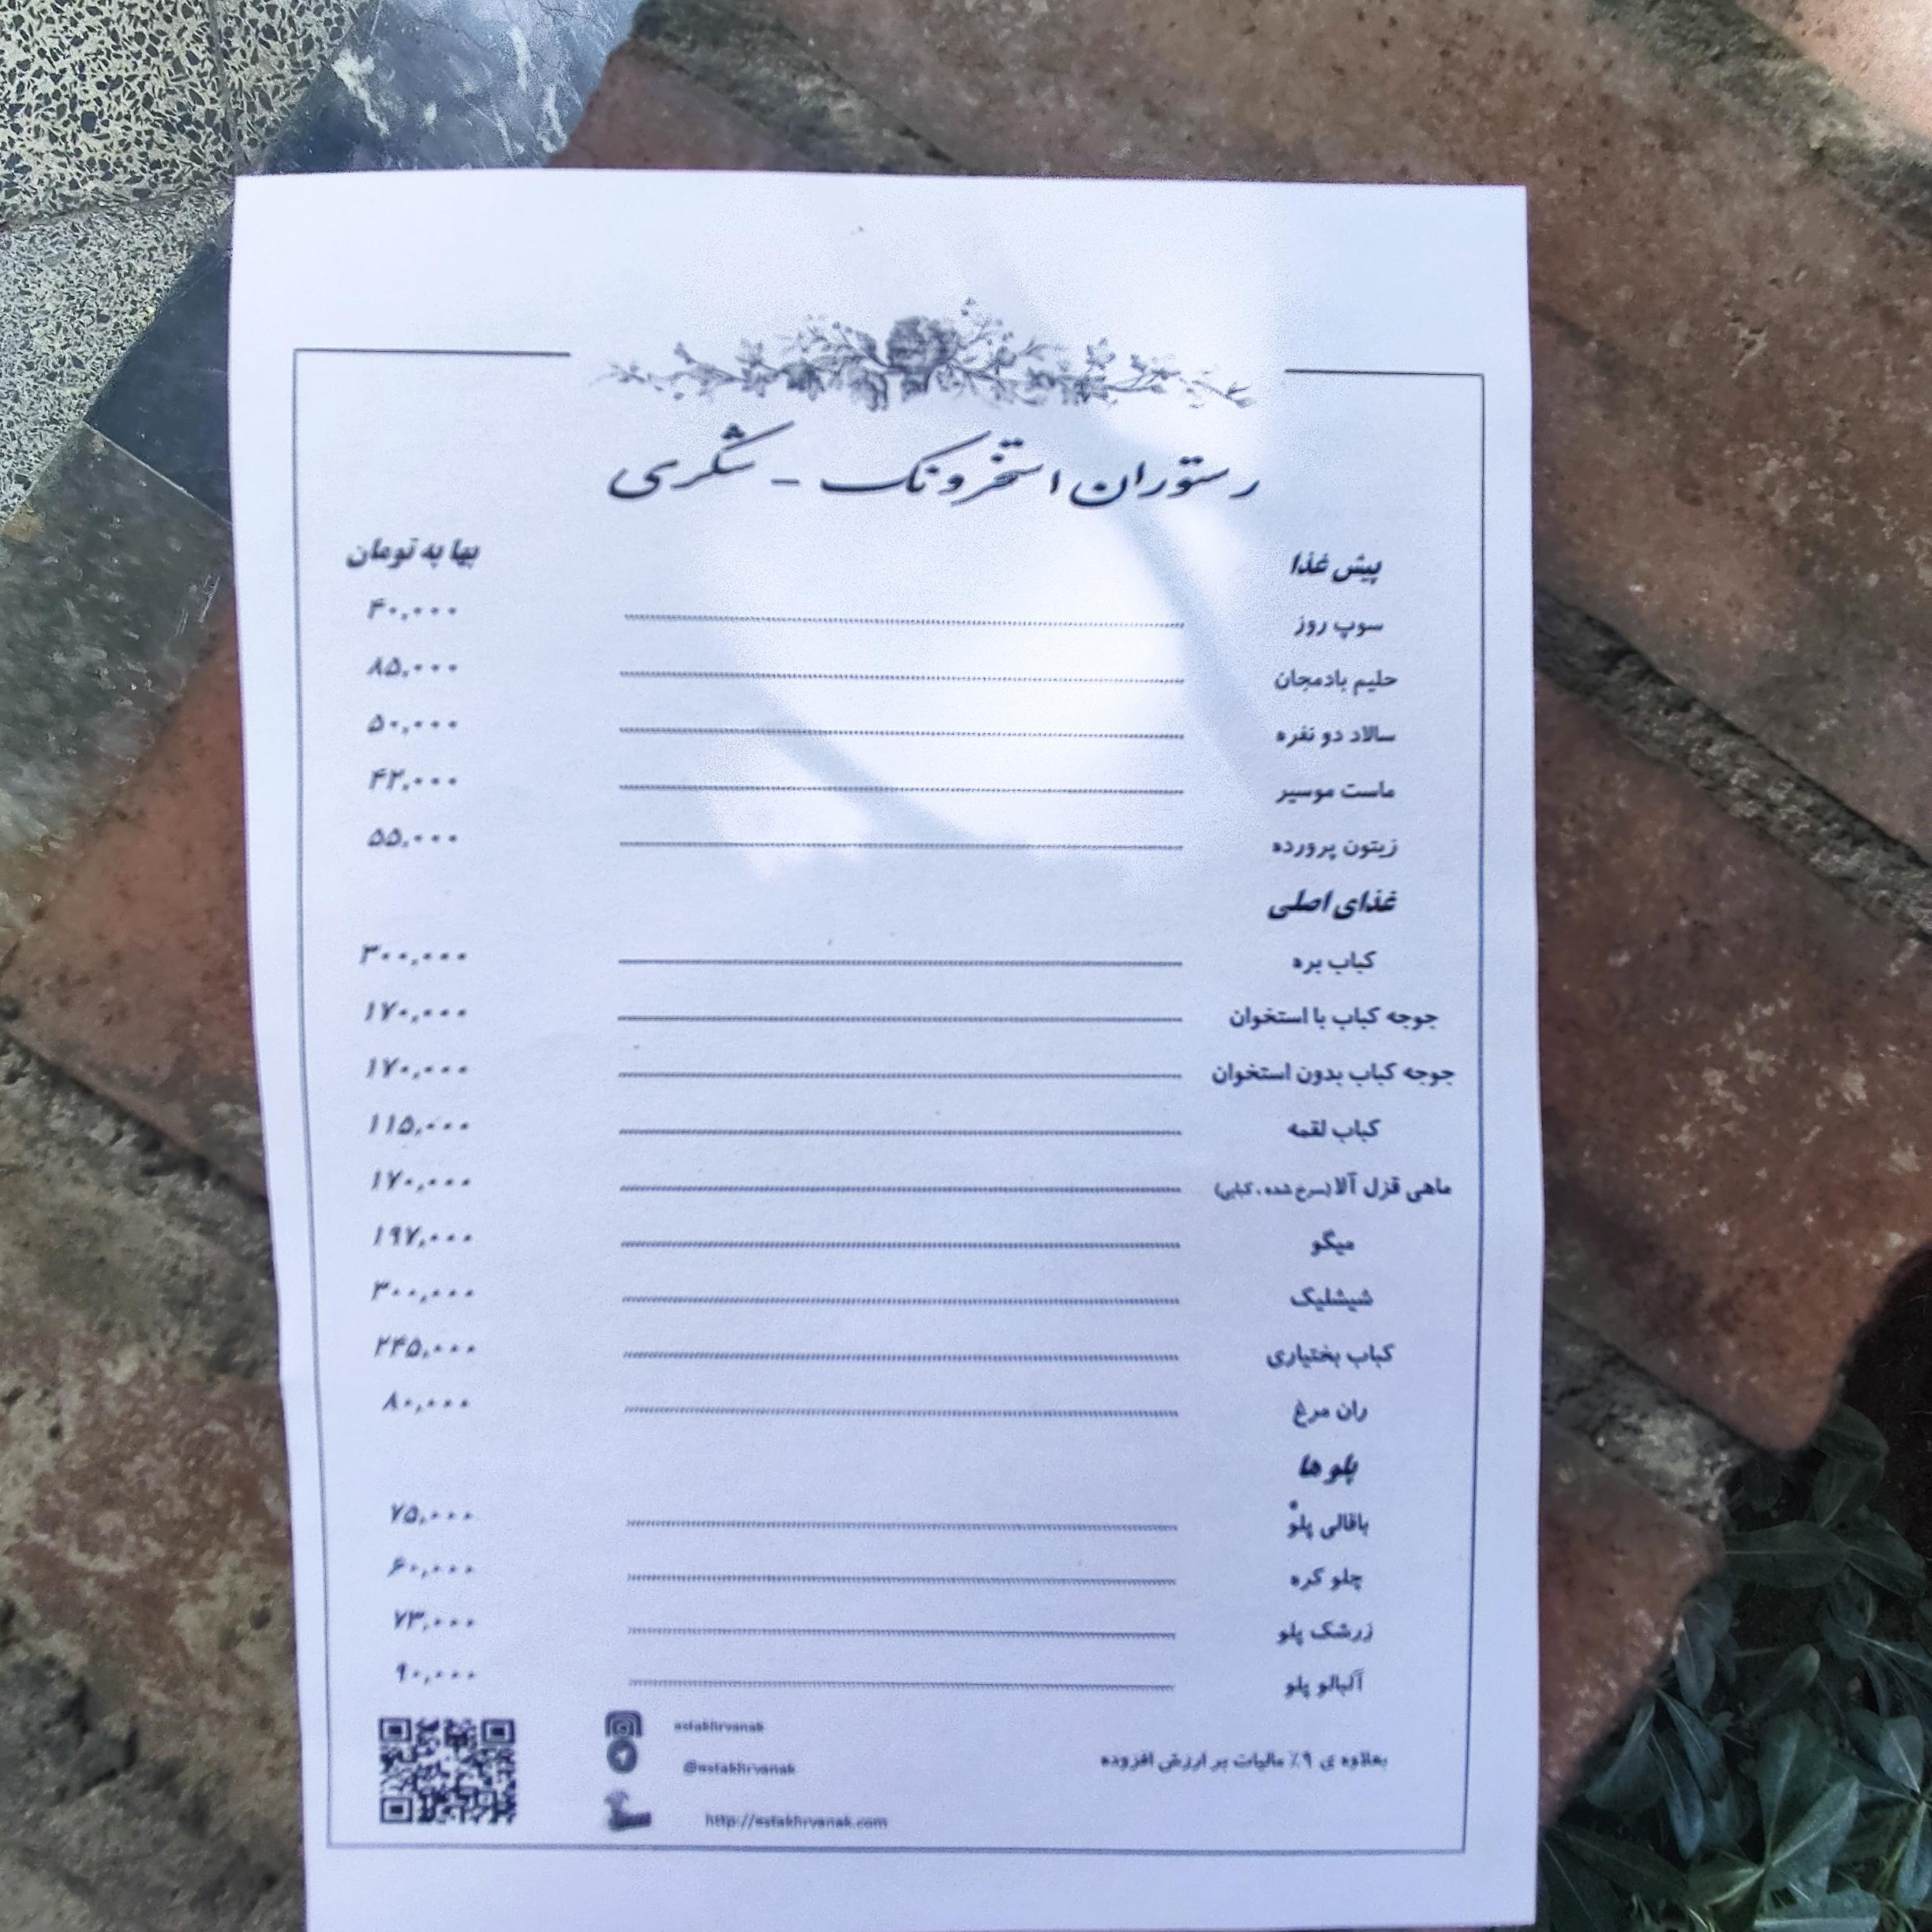 رستوران استخر ونک - شکری
پیش غذا بها به تومان
سوپ روز ۴۰,۰۰۰
حلیم بادمجان ۸۵,۰۰۰
سالاد دو نفره ۵۰,۰۰۰
ماست موسیر ۴۲,۰۰۰
زیتون پرورده ۵۵,۰۰۰
غذای اصلی
کباب بره ۳۰۰,۰۰۰
جوجه کباب با استخوان ۱۷۰,۰۰۰
جوجه کباب بدون استخوان ۱۷۰,۰۰۰
کباب لقمه ۱۱۵,۰۰۰
ماهی قزل آلا (سرخ شده، کبابی) ۱۷۰,۰۰۰
میگو ۱۹۷,۰۰۰
شیشلیک ۳۰۰,۰۰۰
کباب بختیاری ۲۴۵,۰۰۰
ران مرغ ۸۰,۰۰۰
پلو ها
باقالی پلو ۷۵,۰۰۰
چلو کره ۶۰,۰۰۰
زرشک پلو ۷۳,۰۰۰
آلبالو پلو ۹۰,۰۰۰
estakhrvanak
بعلاوه ی ۹٪ مالیات بر ارزش افزوده
@estakhrvanak
http://estakhrvanak.com